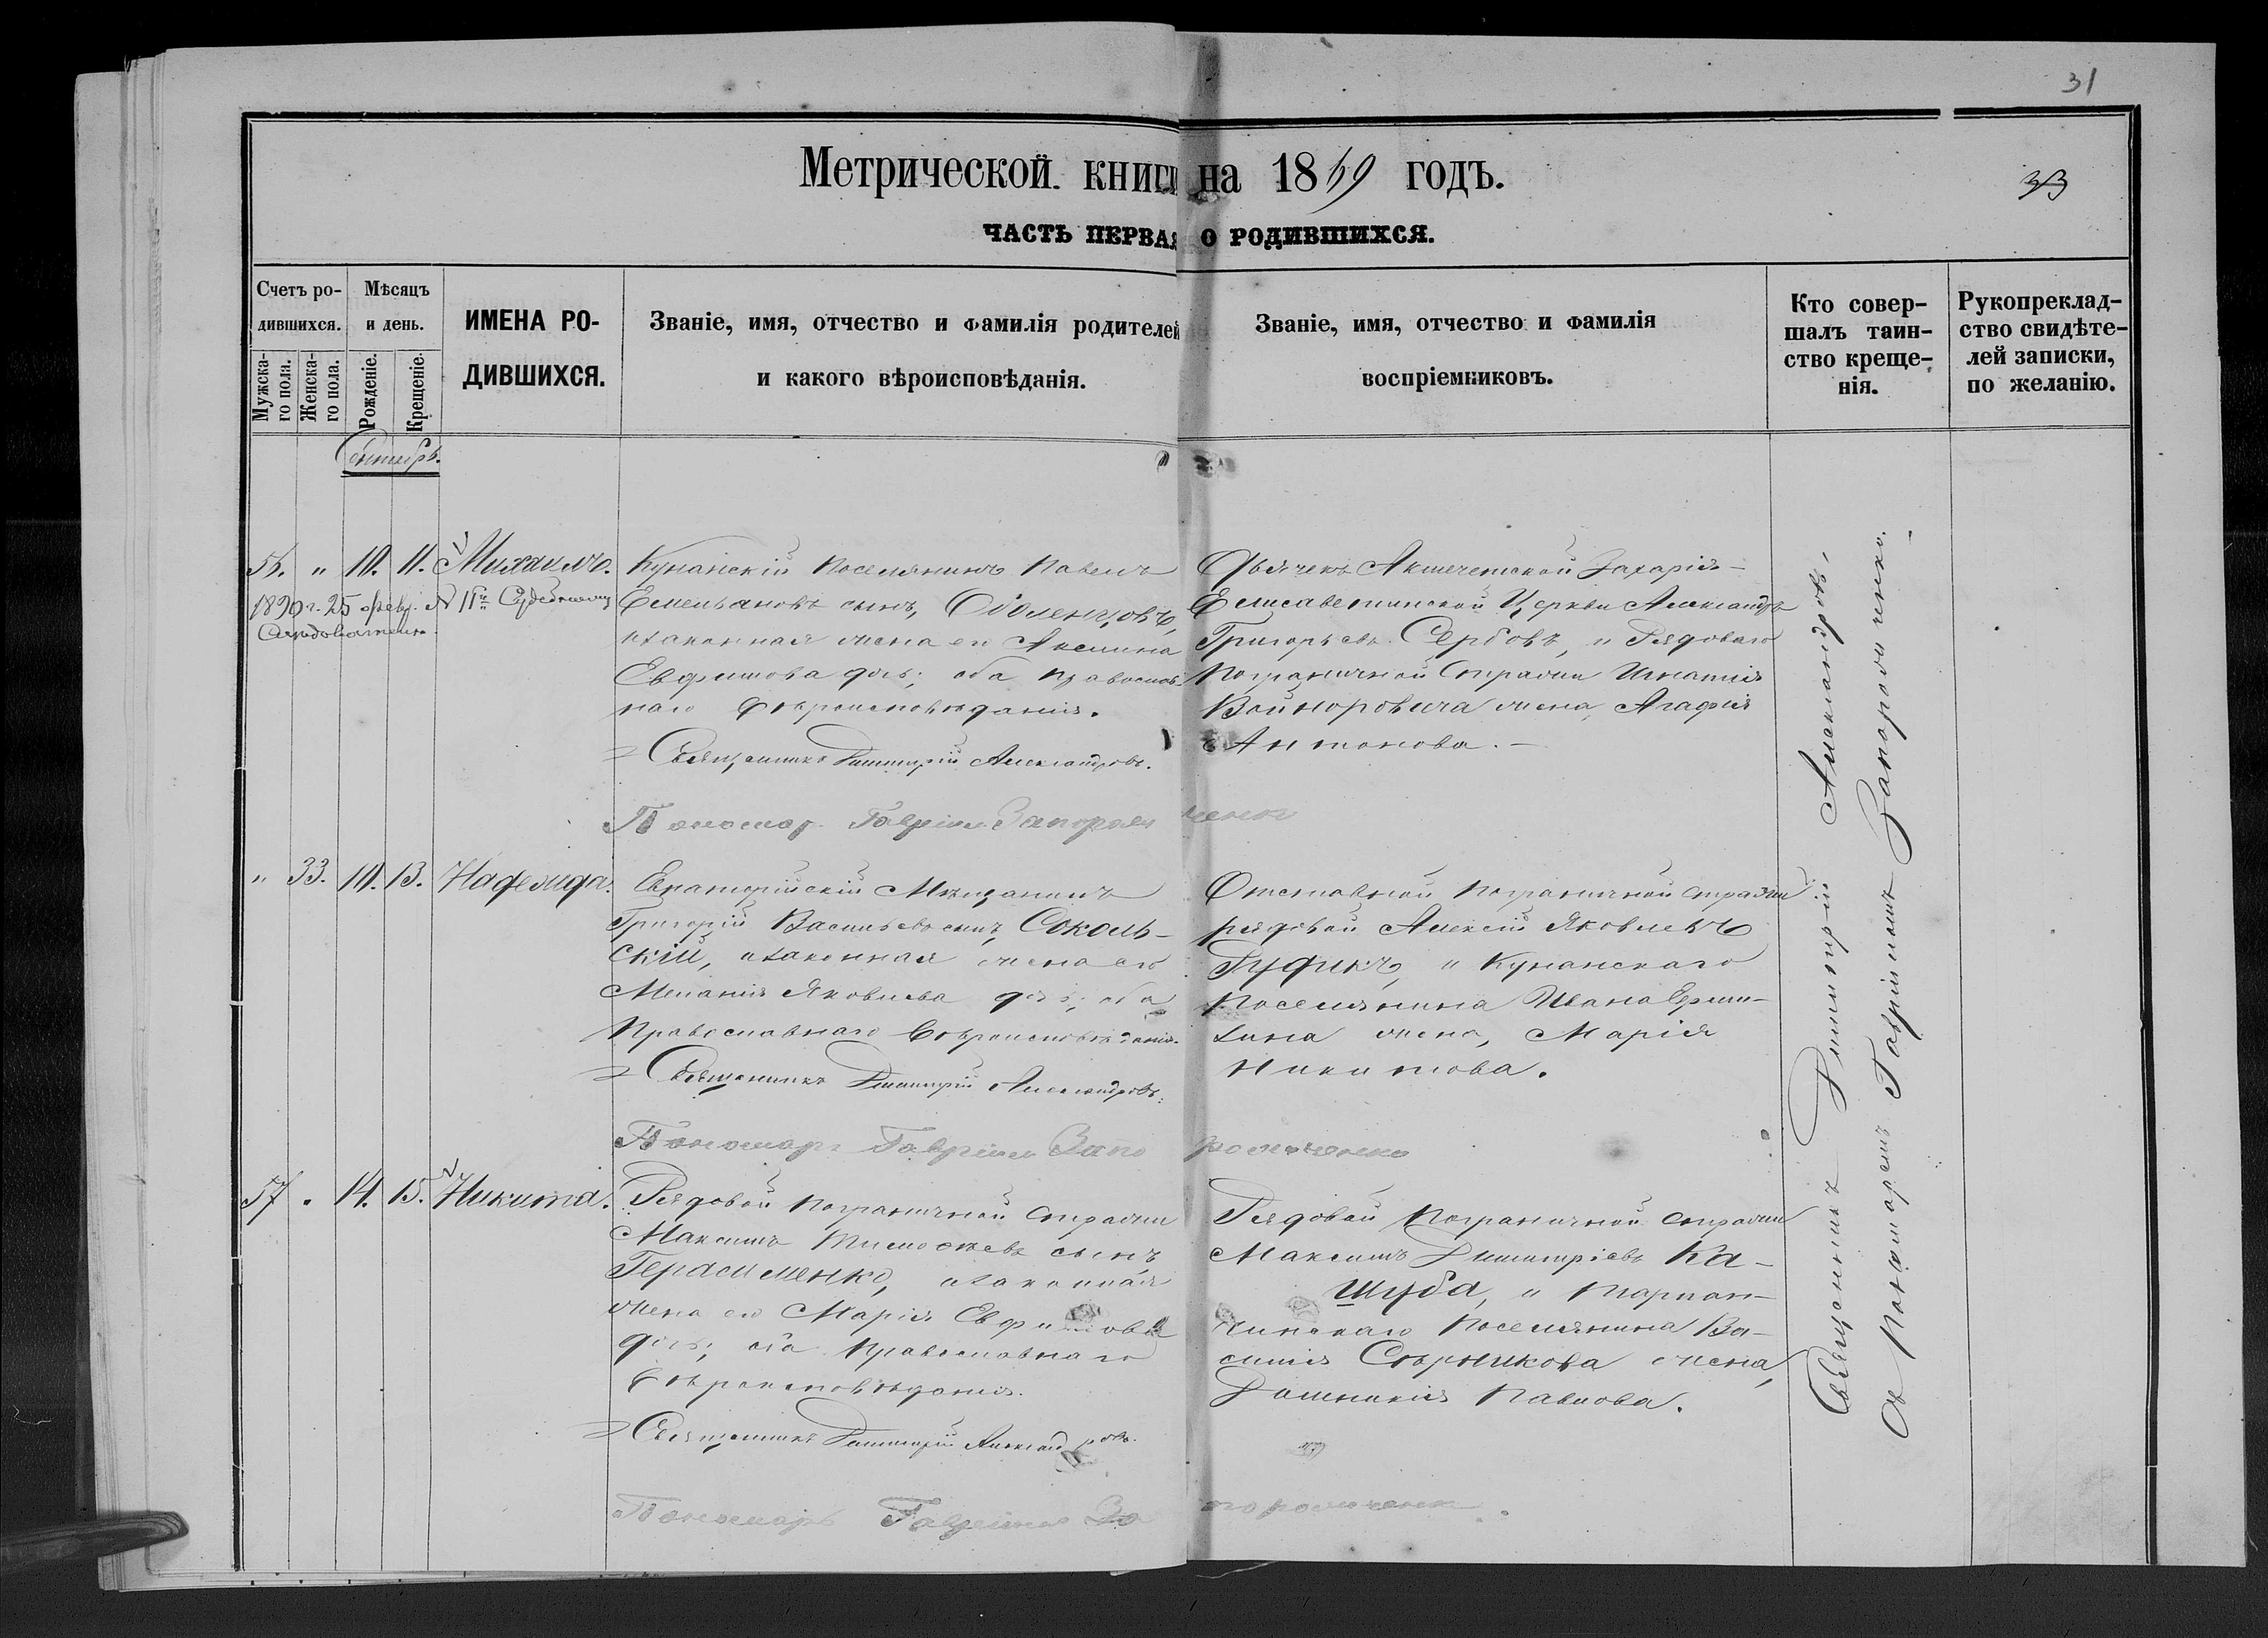 31
Метрической книги на 1869 годъ.
33
ЧАСТЬ ПЕРВАЯ О РОДИВШИХСЯ.
Счетъ ро-
дившихся.
Мужска-
го пола.
Женска-
го пола.
Мѣсяцъ
и день.
Рожденіе.
Крещеніе.
ИМЕНА РО-
ДИВШИХСЯ.
Званіе, имя, отчество и фамилія родителей
и какого вѣроисповѣданія.
Званіе, имя, отчество и фамилія
воспріемниковъ.
Кто совер-
шалъ таин-
ство креще-
нія.
Рукопреклад-
ство свидѣте-
лей записки,
по желанію.
Сентябрь.
56. " 10. 11. Михаилъ.
1890 г. 25 февр. №
Кунанскій поселянинъ Павелъ
Емельяновъ сынъ, Оболенцовъ,
и законная жена его Акилина
Евфимова дочь; оба православ-
наго вѣроисповѣданія.
Священникъ Димитрій Александровъ.
Пономарь Гавріилъ Запорожченко
Дьячекъ Акмечетской Захаріе-
Елисаветинской Церкви Александръ
Григорьевъ Сербовъ, и Рядоваго
Пограничной Стражи Игнатія
Войноровича жена, Агафія
Антонова.
" 33. 10. 13. Надежда.
Евпаторійскій Мѣщанинъ
Григорій Васильевъ сынъ, Соколь-
скій, и законная жена его
Меланія Яковлева дочь; оба
Православнаго вѣроисповѣданія.
Священникъ Димитрій Александровъ.
Пономарь Гавріилъ Запорожченко
Отставной пограничной стражи
рядовой Алексій Яковлевъ
Гудикъ, и Кунанскаго
поселянина Ивана
жена, Марія
Никитова.
57 " 14. 15. Никита.
Рядовой пограничной стражи
Максимъ Тимофеевъ сынъ
Герасименко, и законная
жена его Марія Евфимова
дочь; оба православнаго
вѣроисповѣданія.
Священникъ Димитрій Александровъ.
Пономарь Гавріилъ Запорожченко
Рядовой Пограничной стражи
Максимъ Димитріевъ Ка-
шуба, и Тарпан-
чинскаго поселянина Ва-
силія Сѣрикова жена,
Домникія Павлова.
Священникъ Димитрій Александровъ,
съ Пономаремъ Гавріиломъ Запорожченко.